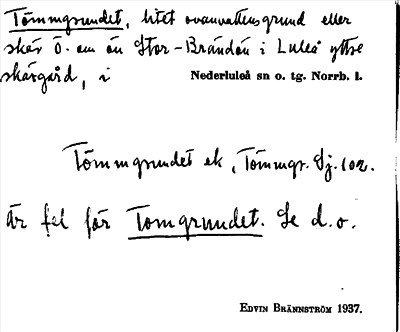 Tömmgrundet, litet ovanvattensgrund eller
skär ö. om ön Stor-Brändön i Luleå yttre
skärgård, i Nederluleå sn o. tg. Norrb. l.
Tömmgrundet ek, Tömmgr. Sj. 102.
Är fel för Tomgrundet. Se d. o.
EDVIN BRÄNNSTRÖM 1937.